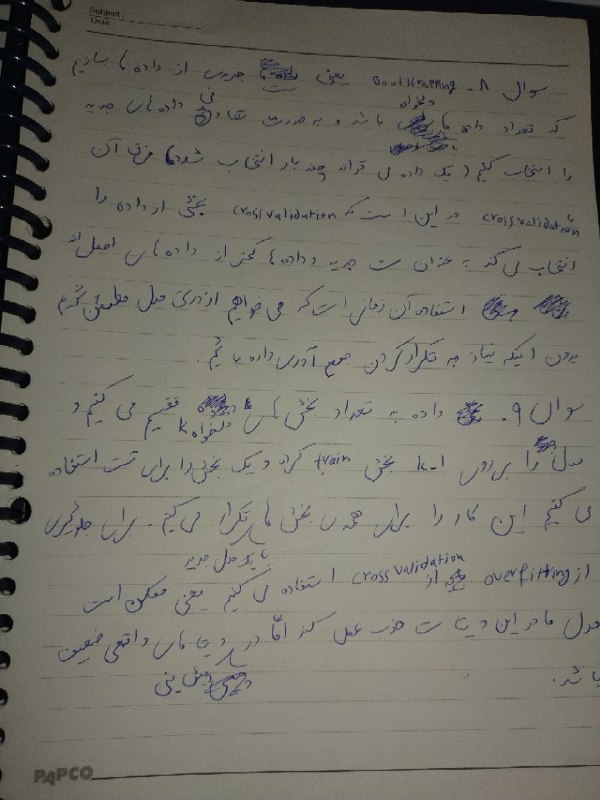 Subject:
Date
سوال ۸. Bootstraping یعنی جدیدی از داده ها بسازیم
که تعداد داده ها دلخواه باشد و به صورت تصادفی داده های جدید
را انتخاب کنیم (یک داده می تواند چند بار انتخاب شود) فرق آن
با crossvalidation در این است که crossvalidation بخشی از داده را
انتخاب می کند به عنوان ست جدید و داده ها کمتر از داده های اصلی اند
استفاده آن زمانی است که می خواهیم از دقت مدل مطمئن شویم
بدون اینکه نیاز به تکرار کردن جمع آوری داده باشیم.
سوال ۹. داده به تعداد بخش های دلخواه k تقسیم می کنیم و
مدل را بر روی k-1 بخش train کرده و یک بخش را برای تست استفاده
می کنیم این کار را برای همه ی بخش ها تکرار می کنیم. برای جلوگیری
با یک مدل جدید
از overfitting از crossvalidation استفاده می کنیم یعنی ممکن است
مدل ما در این دیتا ست خوب عمل کند اما در دیتا های واقعی ضعیف
پیش بینی
باشد.
PAPCO